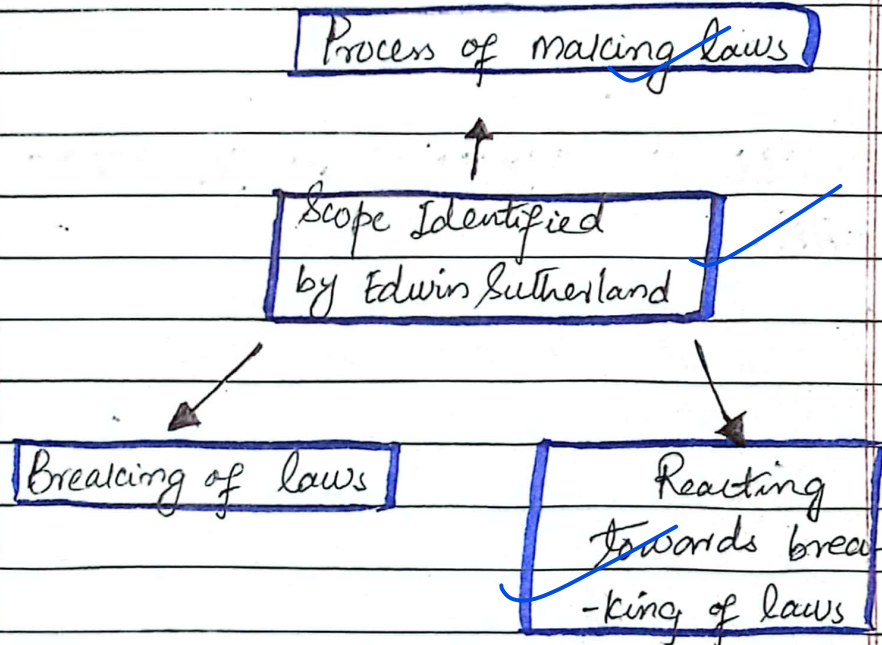 Process of making laws
Scope Identified
by Edwin Sutherland
Breaking of laws
Reacting
towards brea
-king of laws